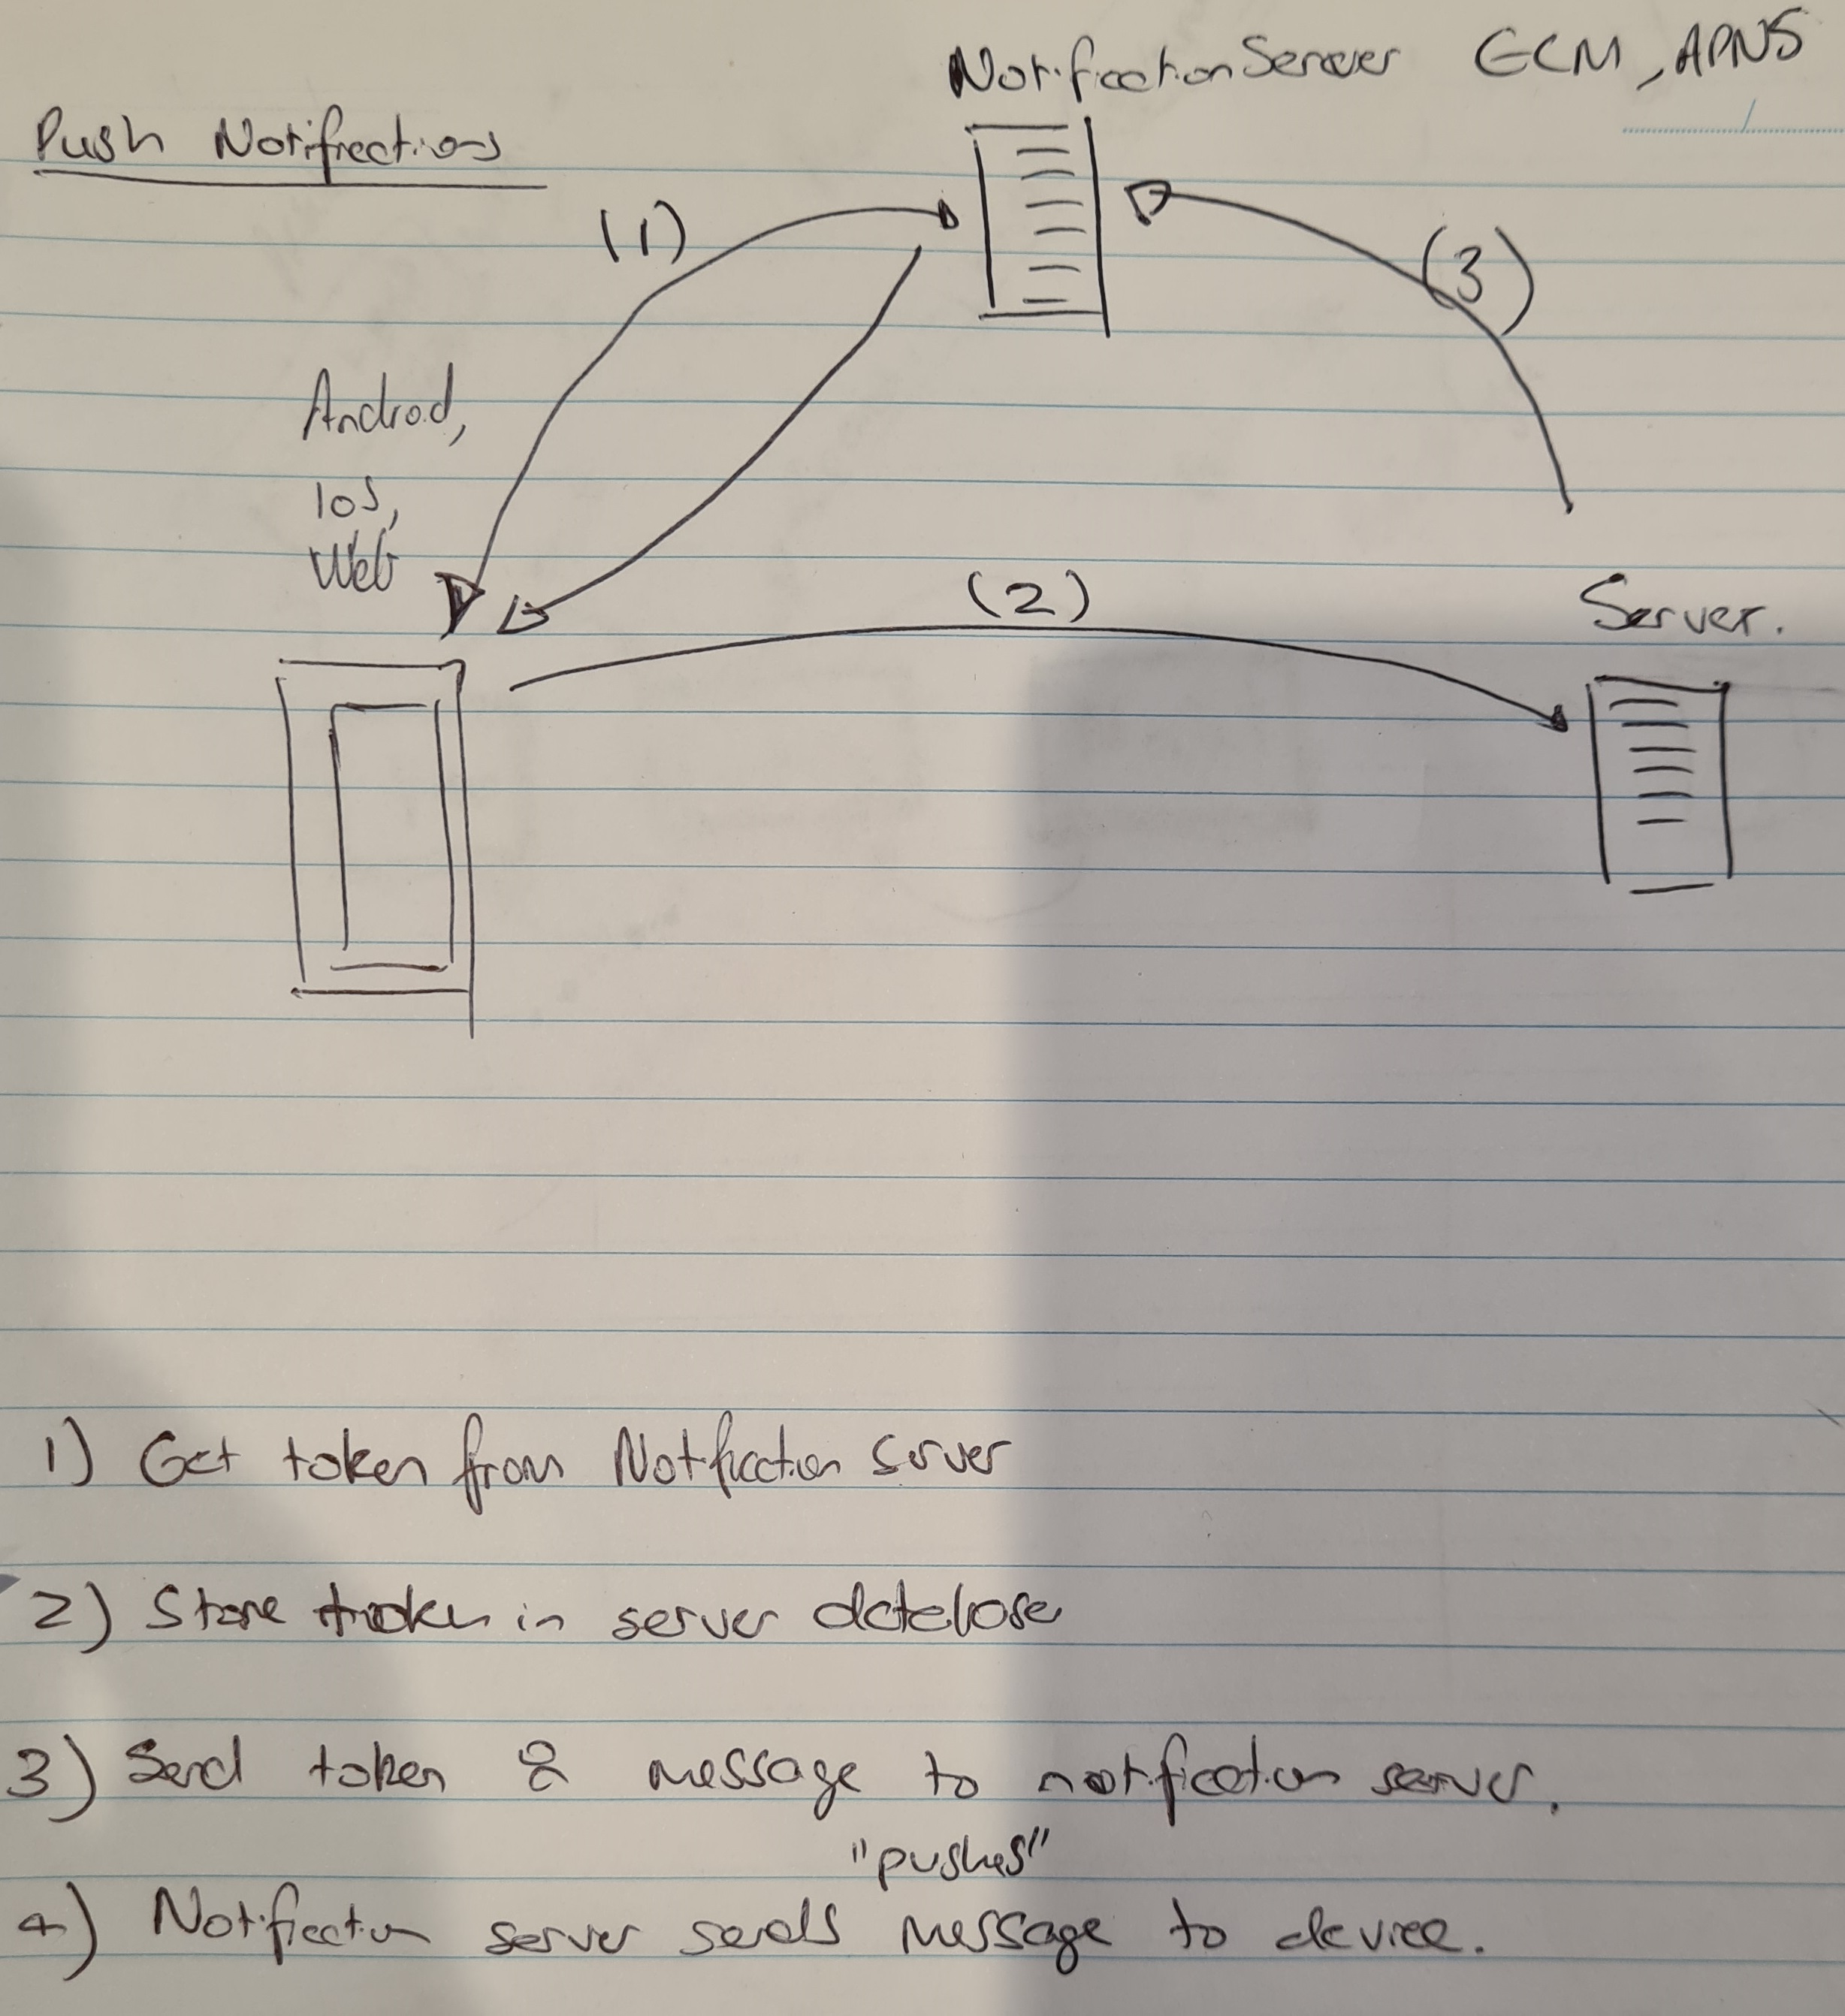 Notification Server GCM, APNS
Push Notifications
(1)
(3)
Android,
IOS,
Web
(2)
Server.
1) Get token from Notification Server
2) Store token in server database
3) Send token & message to notification server.
"pushes"
4) Notification server sends message to device.